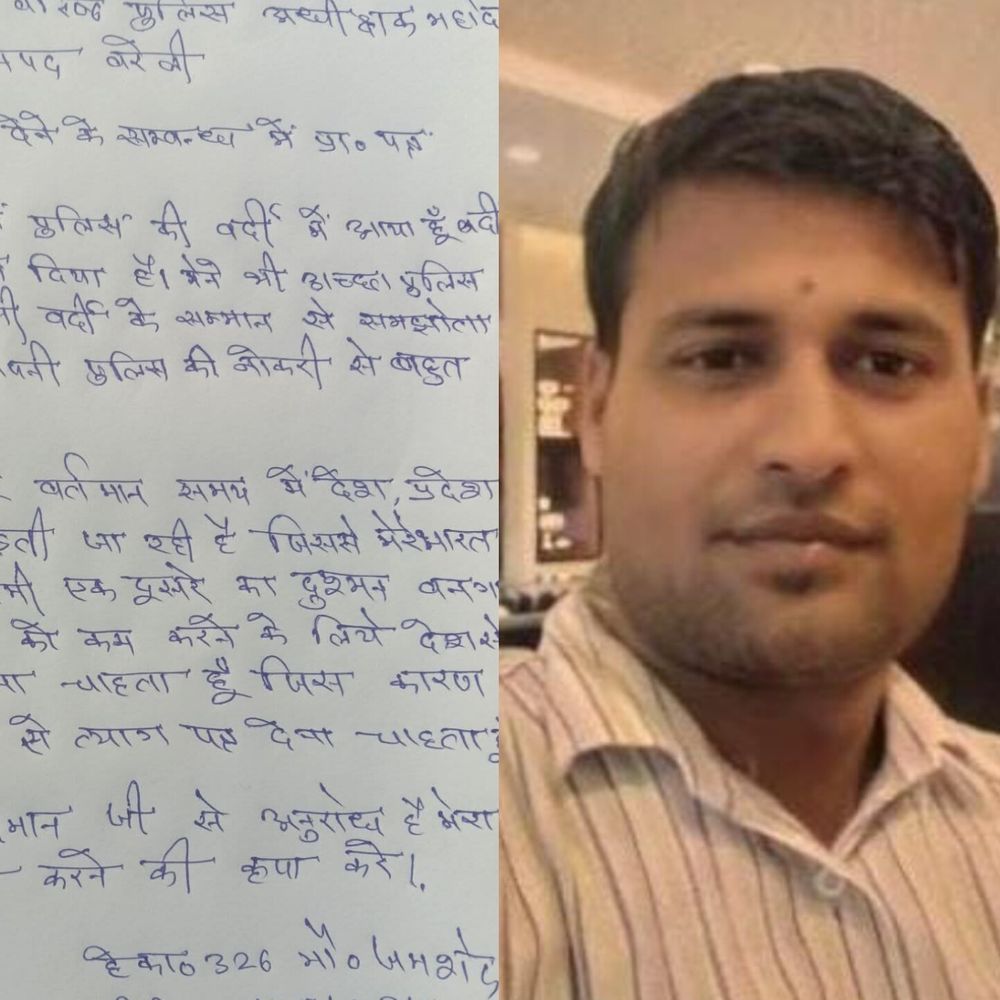 पुलिस अधीक्षक महोद
जनपद बरेली
देने के सम्बन्ध में प्रा० पत्र
पुलिस की वर्दी में आया हूँ वर्दी
दिया है। मेने भी अच्छा पुलिस
वर्दी के सम्मान से समझोता
पुलिस की नौकरी से बहुत
वर्तमान समय में देश, प्रदेश
जा रही है जिससे मेरे भारत
एक दूसरे का दुश्मन बन
को कम करने के लिये देश से
चाहता हूँ जिस कारण
से त्याग पत्र देना चाहता हूँ
जी से अनुरोध है मेरा
करने की कृपा करे।
हे०का० 326 मौ० जमशेद